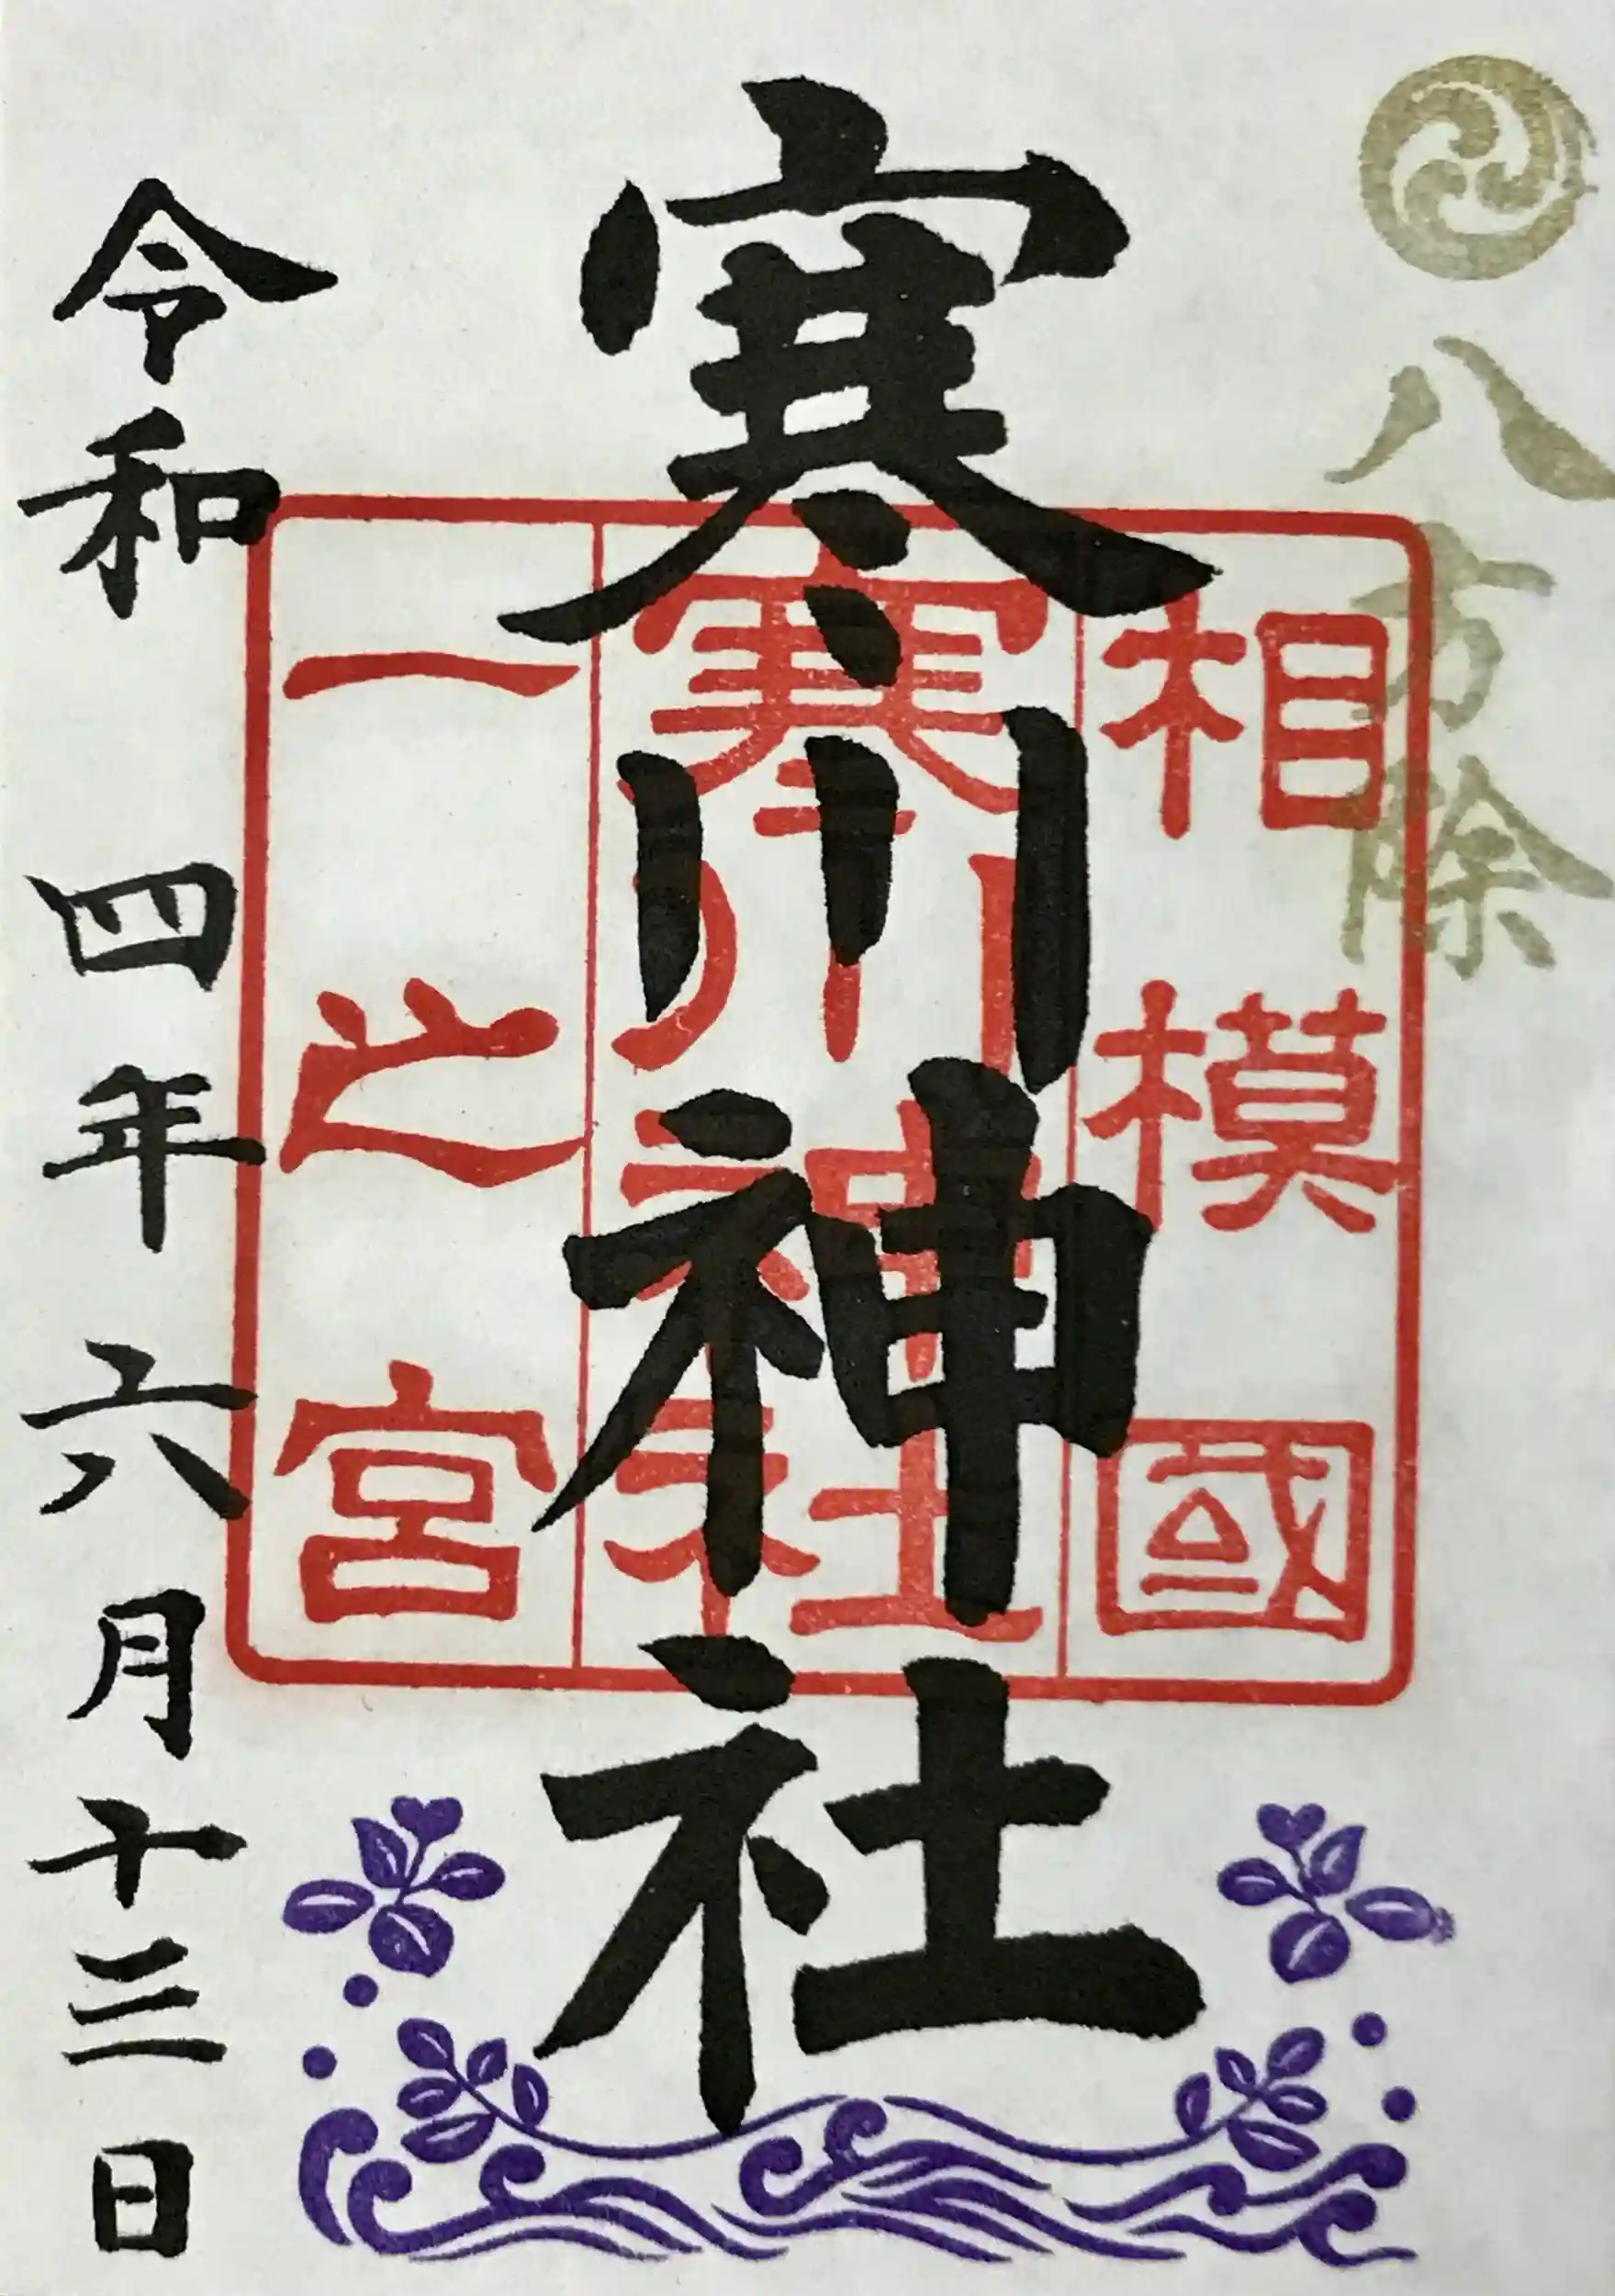 八方除
寒川神社
相模國
寒川神社
一之宮
令和四年六月十三日